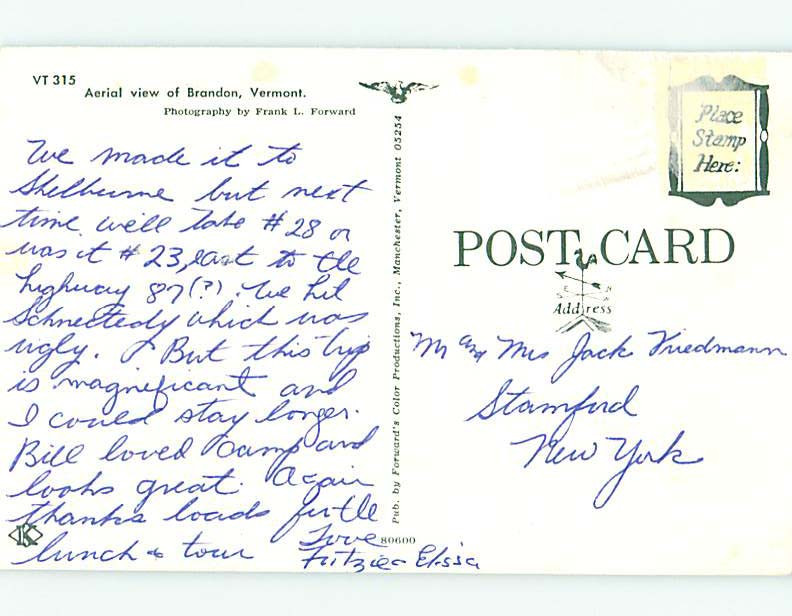 VT 315
Aerial view of Brandon, Vermont.
Photography by Frank L. Forward
We made it to
Shelburne but next
time we'll take # 28 or
was it # 23, east to the
highway 87(?). We hit
Schnectedy which was
ugly. But this trip
is magnificant and
I could stay longer.
Bill loved camp and
looks great. Again
thanks loads for the
lunch & tour
Love
Fritzie & Elissa
K
Pub. by Forward's Color Productions, Inc., Manchester, Vermont 05254
80600
Place
Stamp
Here:
POST CARD
E N
S W
Address
Mr and Mrs Jack Friedmann
Stamford
New York